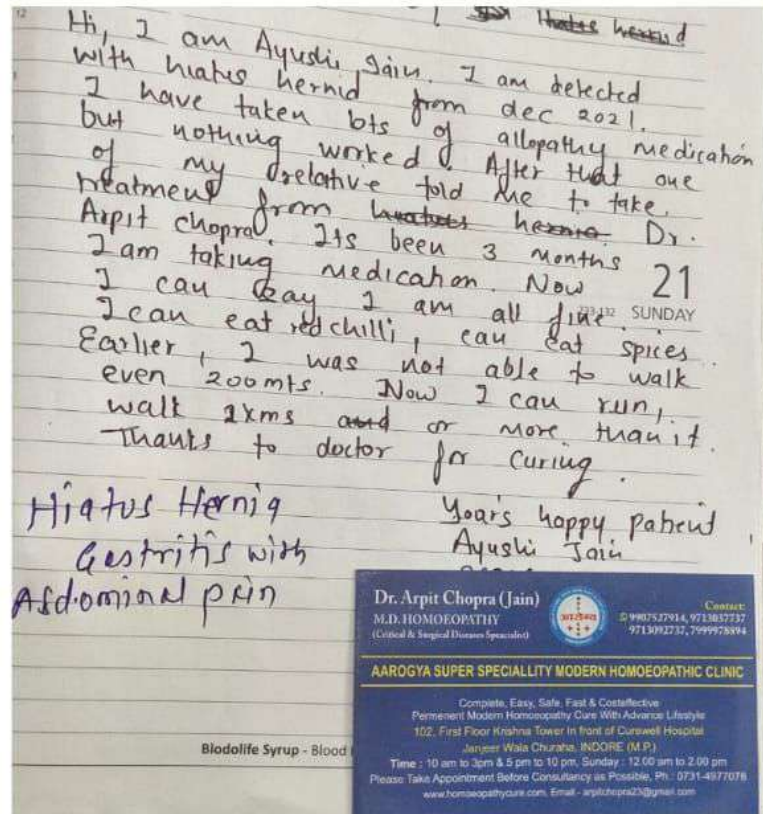 12
Hi, I am Ayushi Jain. I am detected
with hiatus hernid from dec 2021.
I have taken lots of allopathy medication
but nothing worked. After that one
of my relative told me to take.
treatment from hernia Dr.
Arpit chopra. Its been 3 months
I am taking medication. Now
21
I can say I am all fine.
SUNDAY
I can eat red chilli, can eat spices.
Earlier, I was not able to walk
even 200mts. Now I can run,
walk 2kms and or more than it.
Thanks to doctor for curing.
Hiatus Hernia
Gestritis with
Abdominal pain
Your's happy patient
Ayushi Jain
Dr. Arpit Chopra (Jain)
M.D. HOMOEOPATHY
(Critical & Surgical Diseases Speacialist)
Contact:
9907527914, 9713037737
9713092737, 7999978894
AAROGYA SUPER SPECIALLITY MODERN HOMOEOPATHIC CLINIC
Complete, Easy, Safe, Fast & Costeffective
Permenent Modern Homoeopathy Cure With Advance Lifestyle
102, First Floor Krishna Tower In front of Curewell Hospital
Janjeer Wala Churaha, INDORE (M.P.)
Time : 10 am to 3pm & 5 pm to 10 pm, Sunday : 12.00 am to 2.00 pm
Please Take Appointment Before Consultancy as Possible, Ph.: 0731-4977076
www.homoeopathycure.com, Email - arpitchopra23@gmail.com
Blodolife Syrup - Blood